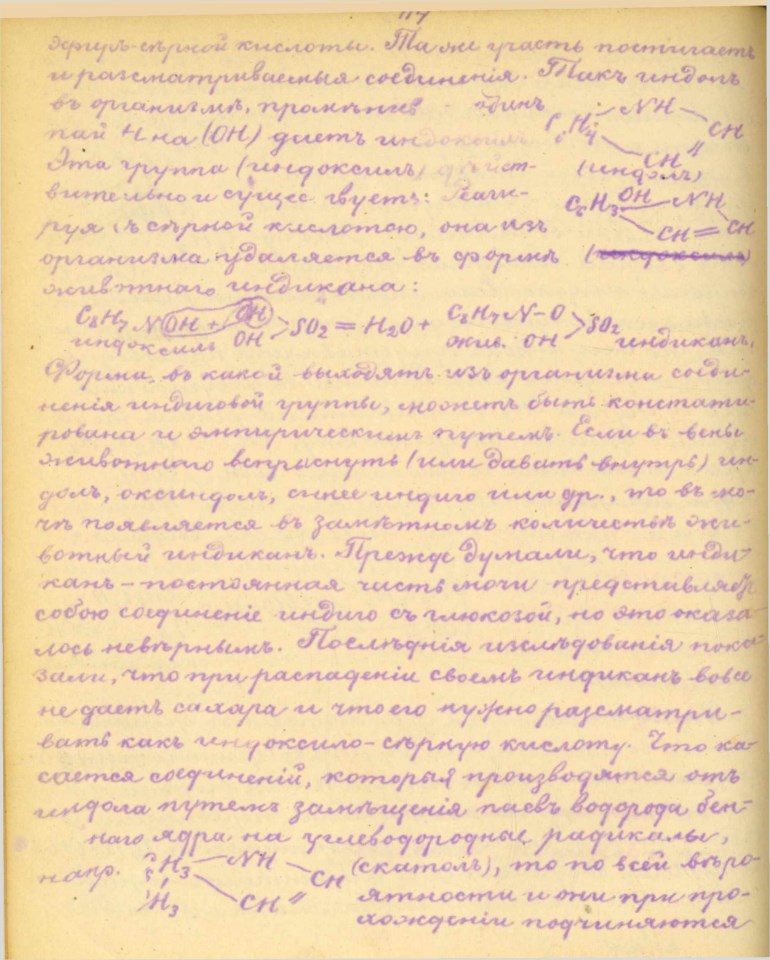 114
эфиръ-сѣрной кислоты. Та же участь постигаетъ
и разсматриваемыя соединенія. Такъ индолъ
въ организмѣ, промѣнив одинъ
пай H на (OH) даетъ индоксилъ
C6H4 NH CH CH
Эта группа (индоксилъ) дѣйст- (индолъ)
вительно и существуетъ: Реаги-
C6H3 OH NH CH = CH
руя съ сѣрной кислотою, она изъ
организма удаляется въ формѣ (индоксилъ)
животнаго индикана:
C8H7NOH + OH OH > SO2 = H2O + C8H7N-O OH > SO2
индоксилъ жив. индиканъ.
Форма, въ какой выходятъ изъ организма соеди-
ненія индиговой группы, можетъ быть констати-
рована и эмпирическимъ путемъ. Если въ вены
животнаго вспрыснуть (или давать внутрь) ин-
долъ, оксиндолъ, синее индиго или др., то въ мо-
чѣ появляется въ замѣтномъ количествѣ жи-
вотный индиканъ. Прежде думали, что инди-
канъ - постоянная часть мочи представляетъ
собою соединеніе индиго съ глюкозой, но это оказа-
лось невѣрнымъ. Послѣднія изслѣдованія пока-
зали, что при распаденіи своемъ индиканъ вовсе
не даетъ сахара и что его нужно разсматри-
вать какъ индоксило-сѣрную кислоту. Что ка-
сается соединеній, которыя производятся отъ
индола путемъ замѣщенія паевъ водорода бен-
наго ядра на углеводородные радикалы,
напр. C6H3 NH CH CH CH3 (скатолъ), то по всей вѣро-
ятности и они при про-
хожденіи подчиняются